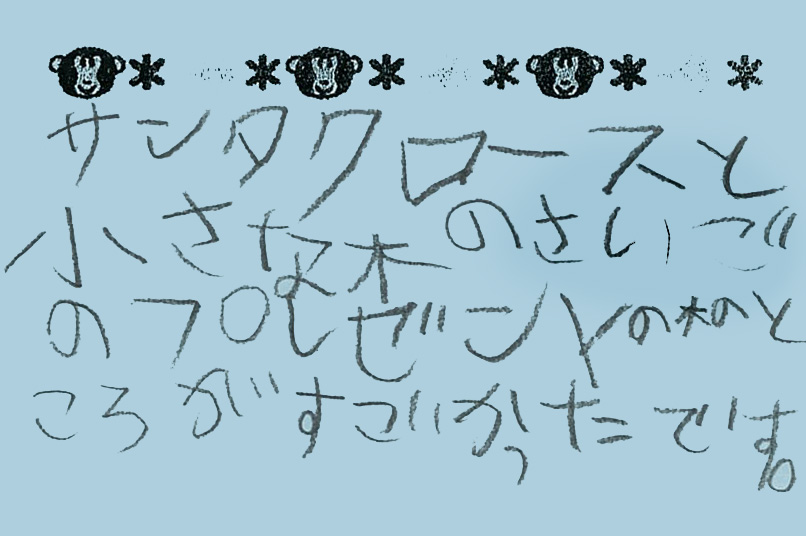 サンタクロースと
小さな木のさいご
のプレゼントの木のと
ころがすごかったです。